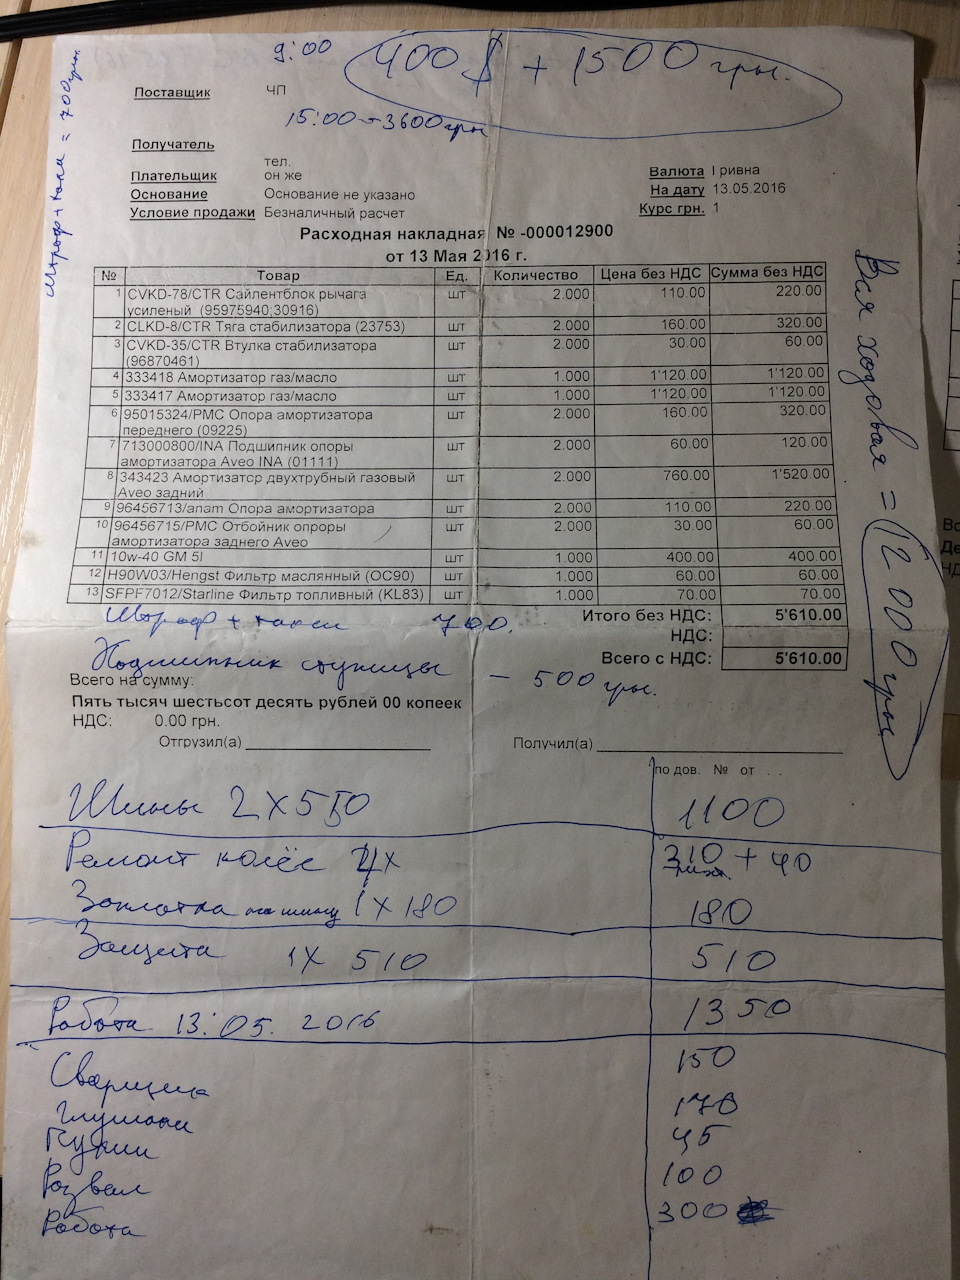 9:00 400$ + 1500 грн.
Штраф + такси = 700 грн
Поставщик ЧП
15:00 - 3600 грн
Получатель
тел.
Плательщик он же
Основание Основание не указано
Условие продажи Безналичный расчет
Валюта Гривна
На дату 13.05.2016
Курс грн. 1
Расходная накладная № -000012900
от 13 Мая 2016 г.
№ Товар Ед. Количество Цена без НДС Сумма без НДС
1 CVKD-78/CTR Сайлентблок рычага усиленый (95975940;30916) шт 2.000 110.00 220.00
2 CLKD-8/CTR Тяга стабилизатора (23753) шт 2.000 160.00 320.00
3 CVKD-35/CTR Втулка стабилизатора (96870461) шт 2.000 30.00 60.00
4 333418 Амортизатор газ/масло шт 1.000 1'120.00 1'120.00
5 333417 Амортизатор газ/масло шт 1.000 1'120.00 1'120.00
6 95015324/PMC Опора амортизатора переднего (09225) шт 2.000 160.00 320.00
7 713000800/INA Подшипник опоры амортизатора Aveo INA (01111) шт 2.000 60.00 120.00
8 343423 Амортизатор двухтрубный газовый Aveo задний шт 2.000 760.00 1'520.00
9 96456713/anam Опора амортизатора шт 2.000 110.00 220.00
10 96456715/PMC Отбойник опроры амортизатора заднего Aveo шт 2.000 30.00 60.00
11 10w-40 GM 5l шт 1.000 400.00 400.00
12 H90W03/Hengst Фильтр маслянный (OC90) шт 1.000 60.00 60.00
13 SFPF7012/Starline Фильтр топливный (KL83) шт 1.000 70.00 70.00
Итого без НДС: 5'610.00
НДС:
Всего с НДС: 5'610.00
Вся ходовая = 12000 грн
Штраф + такси 700.
Подшипник ступицы - 500 грн.
Всего на сумму:
Пять тысяч шестьсот десять рублей 00 копеек
НДС: 0.00 грн.
Отгрузил(а) Получил(а)
по дов. № от . .
Шины 2 x 550 1100
Ремонт колёс 4x 310 + 40
Заплатка на шину 1 x 180 180
Защита 1x 510 510
Работа 13.05.2016 1350
Сварщик 150
Глушаки 170
Гутки 45
Развал 100
Работа 300